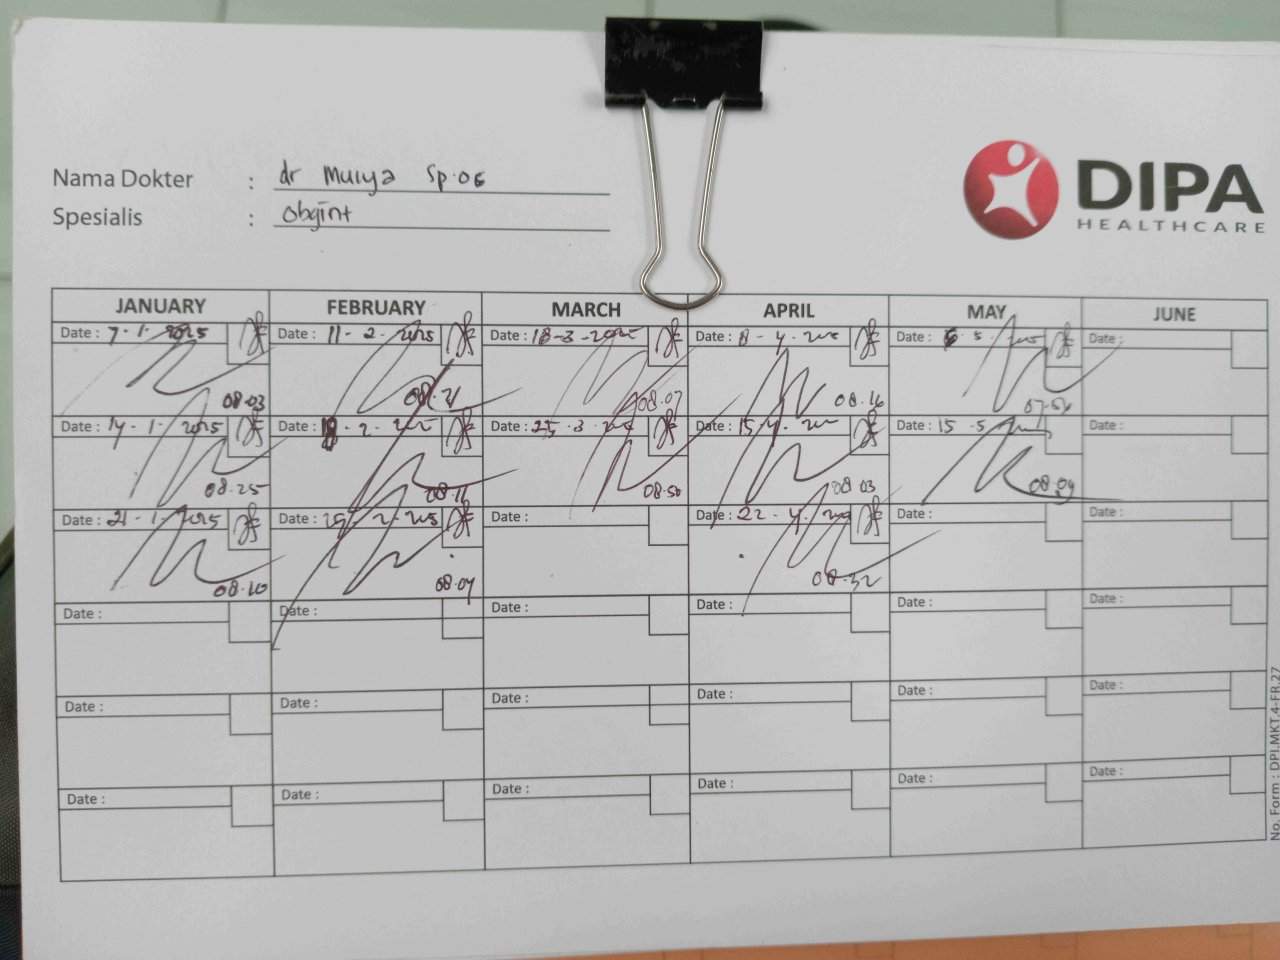 Nama Dokter : dr Mulya Sp.OG
Spesialis : Obgint
DIPA
HEALTHCARE
JANUARY FEBRUARY MARCH APRIL MAY JUNE
Date : 7-1-2025 Date : 11-2-2025 Date : 18-3-2025 Date : 8-4-2025 Date : 6-5-2025 Date :
08.03 08.21 08.07 08.16 07.56
Date : 14-1-2025 Date : 18-2-2025 Date : 25-3-2025 Date : 15-4-2025 Date : 15-5-2025 Date :
08.25 08.11 08.50 08.03 08.09
Date : 21-1-2025 Date : 25-2-2025 Date : Date : 22-4-2025 Date : Date :
08.10 08.07 08.32
Date : Date : Date : Date : Date : Date :
Date : Date : Date : Date : Date : Date :
Date : Date : Date : Date : Date : Date :
No. Form : DPI.MKT.4-FR.27